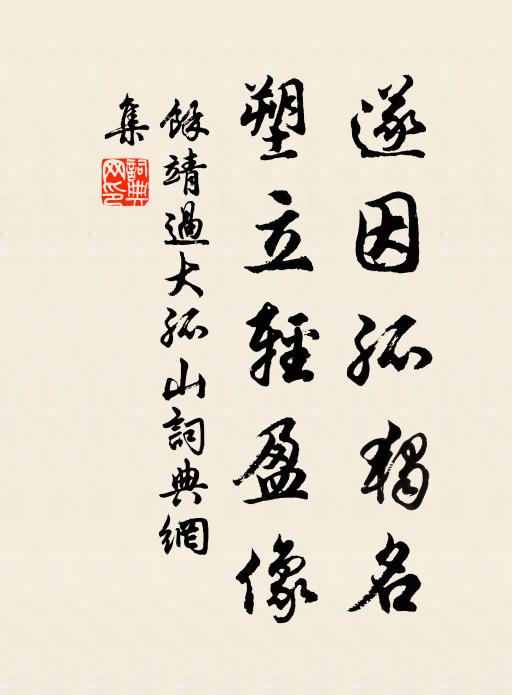 遂因孤独名
塑立輕盈像
餘靖過大孤山詞典網
集
詞典網印